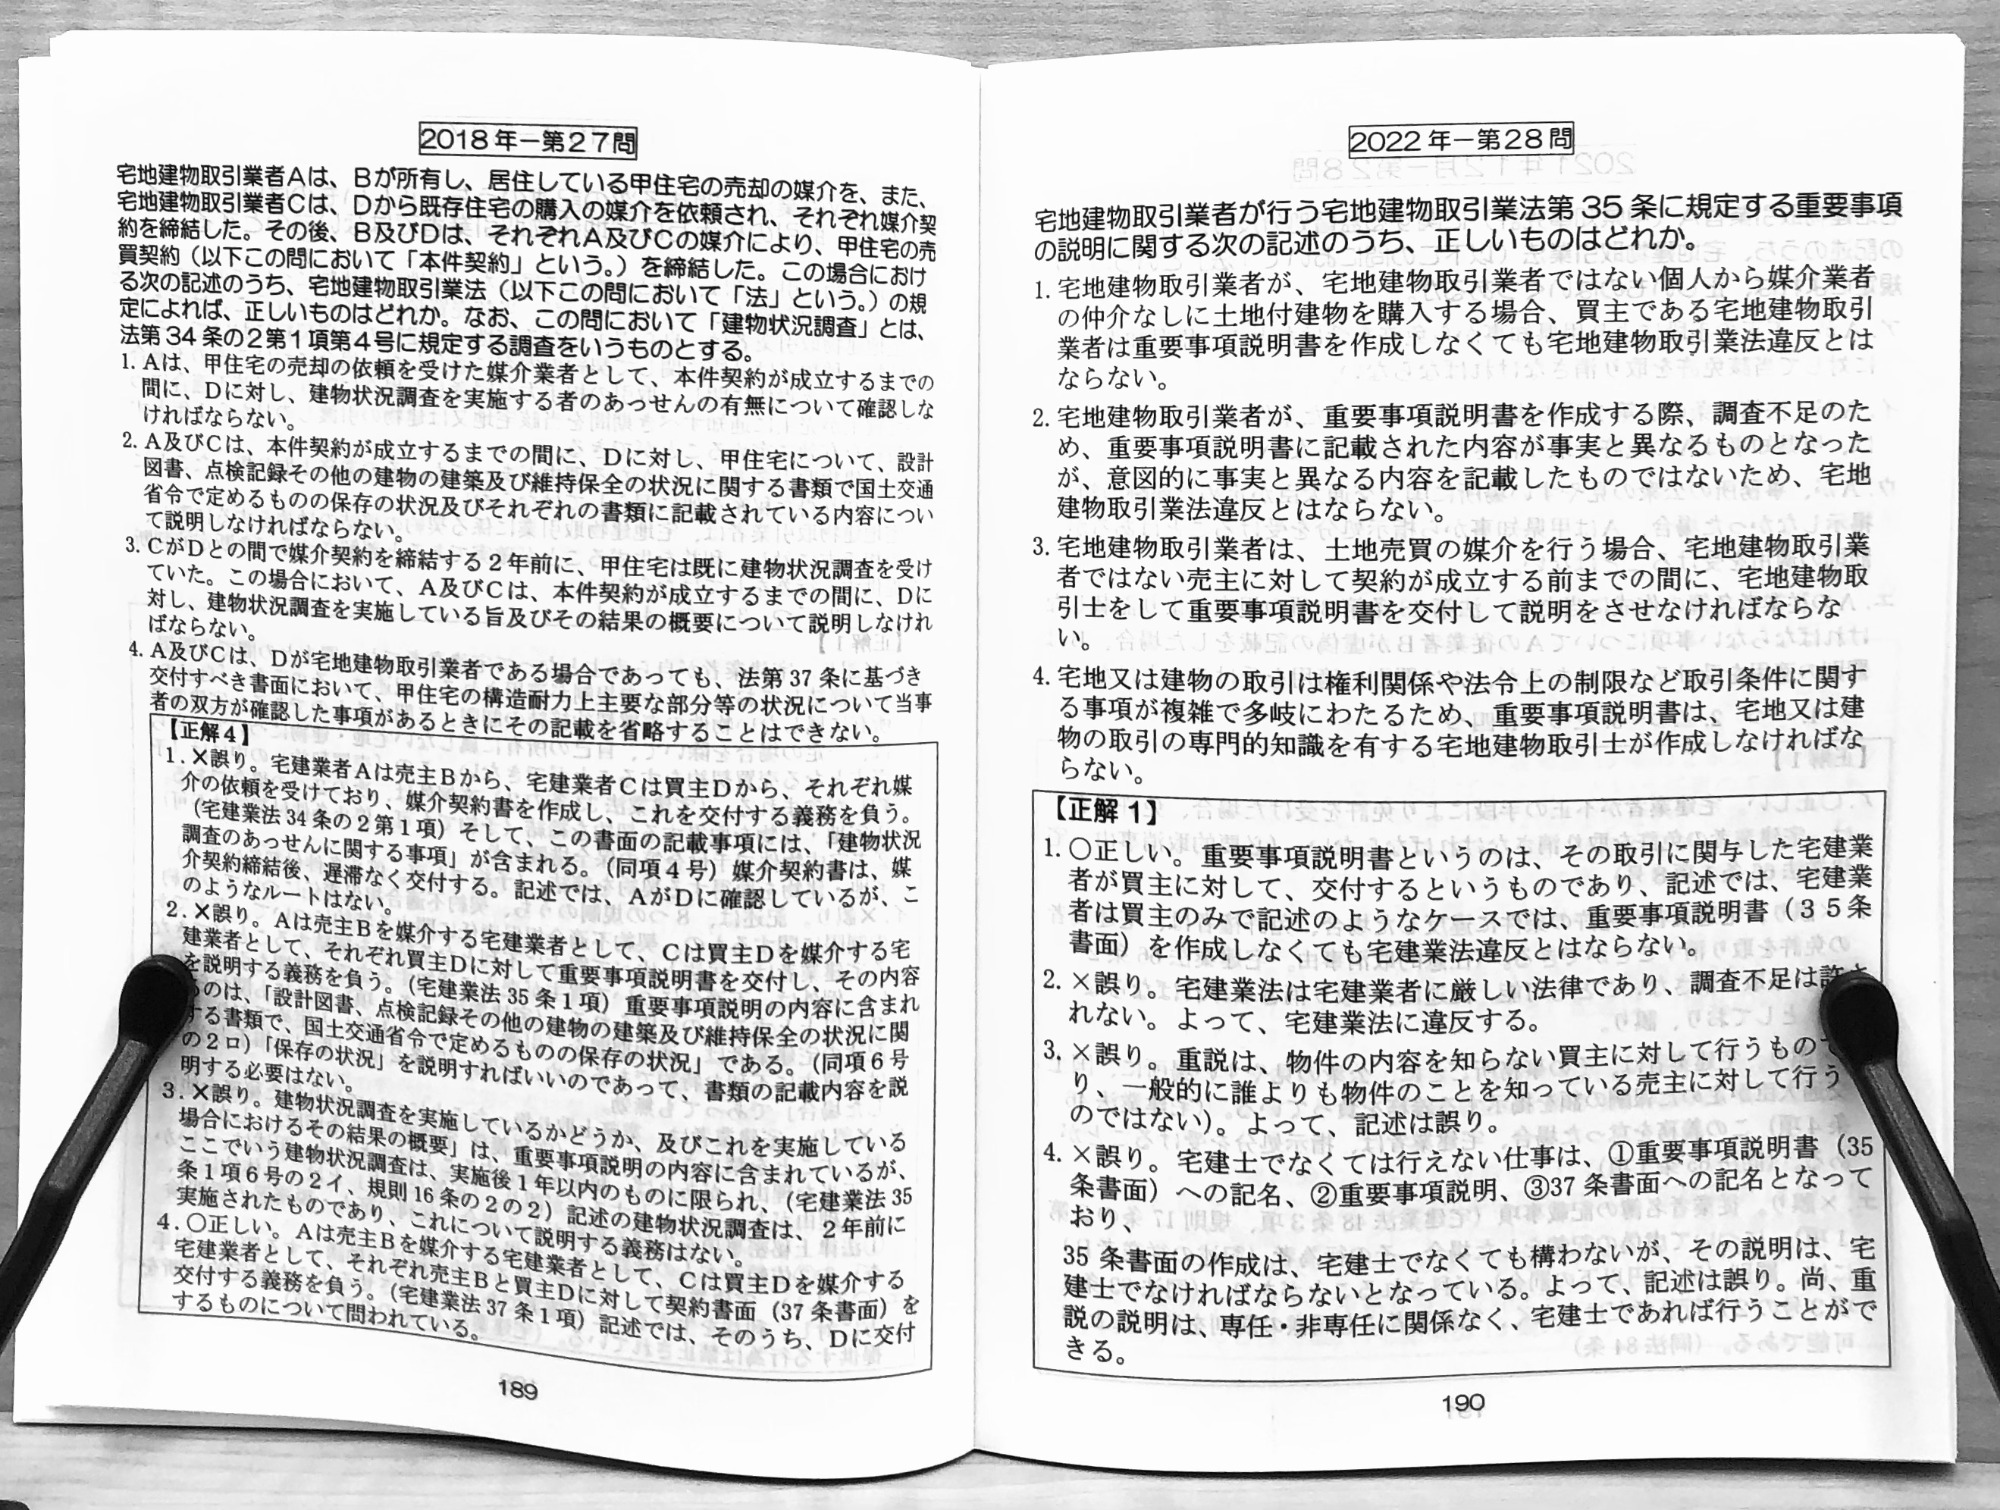 2018年－第27問
宅地建物取引業者Aは、Bが所有し、居住している甲住宅の売却の媒介を、また、
宅地建物取引業者Cは、Dから既存住宅の購入の媒介を依頼され、それぞれ媒介契
約を締結した。その後、B及びDは、それぞれA及びCの媒介により、甲住宅の売
買契約（以下この問において「本件契約」という。）を締結した。この場合におけ
る次の記述のうち、宅地建物取引業法（以下この問において「法」という。）の規
定によれば、正しいものはどれか。なお、この問において「建物状況調査」とは、
法第34条の2第1項第4号に規定する調査をいうものとする。
1. Aは、甲住宅の売却の依頼を受けた媒介業者として、本件契約が成立するまでの
間に、Dに対し、建物状況調査を実施する者のあっせんの有無について確認しな
ければならない。
2. A及びCは、本件契約が成立するまでの間に、Dに対し、甲住宅について、設計
図書、点検記録その他の建物の建築及び維持保全の状況に関する書類で国土交通
省令で定めるものの保存の状況及びそれぞれの書類に記載されている内容につい
て説明しなければならない。
3. CがDとの間で媒介契約を締結する2年前に、甲住宅は既に建物状況調査を受け
ていた。この場合において、A及びCは、本件契約が成立するまでの間に、Dに
対し、建物状況調査を実施している旨及びその結果の概要について説明しなけれ
ばならない。
4. A及びCは、Dが宅地建物取引業者である場合であっても、法第37条に基づき
交付すべき書面において、甲住宅の構造耐力上主要な部分等の状況について当事
者の双方が確認した事項があるときにその記載を省略することはできない。
【正解4】
1．×誤り。宅建業者Aは売主Bから、宅建業者Cは買主Dから、それぞれ媒
介の依頼を受けており、媒介契約書を作成し、これを交付する義務を負う。
（宅建業法34条の2第1項）そして、この書面の記載事項には、「建物状況
調査のあっせんに関する事項」が含まれる。（同項4号）媒介契約書は、媒
介契約締結後、遅滞なく交付する。記述では、AがDに確認しているが、こ
のようなルートはない。
2．×誤り。Aは売主Bを媒介する宅建業者として、Cは買主Dを媒介する宅
建業者として、それぞれ買主Dに対して重要事項説明書を交付し、その内容
を説明する義務を負う。（宅建業法35条1項）重要事項説明の内容に含まれ
のは、「設計図書、点検記録その他の建物の建築及び維持保全の状況に関
する書類で、国土交通省令で定めるものの保存の状況」である。（同項6号
の2ロ）「保存の状況」を説明すればいいのであって、書類の記載内容を説
明する必要はない。
3．×誤り。建物状況調査を実施しているかどうか、及びこれを実施している
場合におけるその結果の概要」は、重要事項説明の内容に含まれているが、
ここでいう建物状況調査は、実施後1年以内のものに限られ、（宅建業法35
条1項6号の2イ、規則16条の2の2）記述の建物状況調査は、2年前に
実施されたものであり、これについて説明する義務はない。
4．○正しい。Aは売主Bを媒介する宅建業者として、Cは買主Dを媒介する
宅建業者として、それぞれ売主Bと買主Dに対して契約書面（37条書面）を
交付する義務を負う。（宅建業法37条1項）記述では、そのうち、Dに交付
するものについて問われている。
189
2022年－第28問
宅地建物取引業者が行う宅地建物取引業法第35条に規定する重要事項
の説明に関する次の記述のうち、正しいものはどれか。
1. 宅地建物取引業者が、宅地建物取引業者ではない個人から媒介業者
の仲介なしに土地付建物を購入する場合、買主である宅地建物取引
業者は重要事項説明書を作成しなくても宅地建物取引業法違反とは
ならない。
2. 宅地建物取引業者が、重要事項説明書を作成する際、調査不足のた
め、重要事項説明書に記載された内容が事実と異なるものとなった
が、意図的に事実と異なる内容を記載したものではないため、宅地
建物取引業法違反とはならない。
3. 宅地建物取引業者は、土地売買の媒介を行う場合、宅地建物取引業
者ではない売主に対して契約が成立する前までの間に、宅地建物取
引士をして重要事項説明書を交付して説明をさせなければならな
い。
4. 宅地又は建物の取引は権利関係や法令上の制限など取引条件に関す
る事項が複雑で多岐にわたるため、重要事項説明書は、宅地又は建
物の取引の専門的知識を有する宅地建物取引士が作成しなければな
らない。
【正解1】
1. ○正しい。重要事項説明書というのは、その取引に関与した宅建業
者が買主に対して、交付するというものであり、記述では、宅建業
者は買主のみで記述のようなケースでは、重要事項説明書（35条
書面）を作成しなくても宅建業法違反とはならない。
2. ×誤り。宅建業法は宅建業者に厳しい法律であり、調査不足は許さ
れない。よって、宅建業法に違反する。
3. ×誤り。重説は、物件の内容を知らない買主に対して行うもので
り、一般的に誰よりも物件のことを知っている売主に対して行う
のではない）。よって、記述は誤り。
4. ×誤り。宅建士でなくては行えない仕事は、①重要事項説明書（35
条書面）への記名、②重要事項説明、③37条書面への記名となって
おり、
35条書面の作成は、宅建士でなくても構わないが、その説明は、宅
建士でなければならないとなっている。よって、記述は誤り。尚、重
説の説明は、専任・非専任に関係なく、宅建士であれば行うことがで
きる。
190